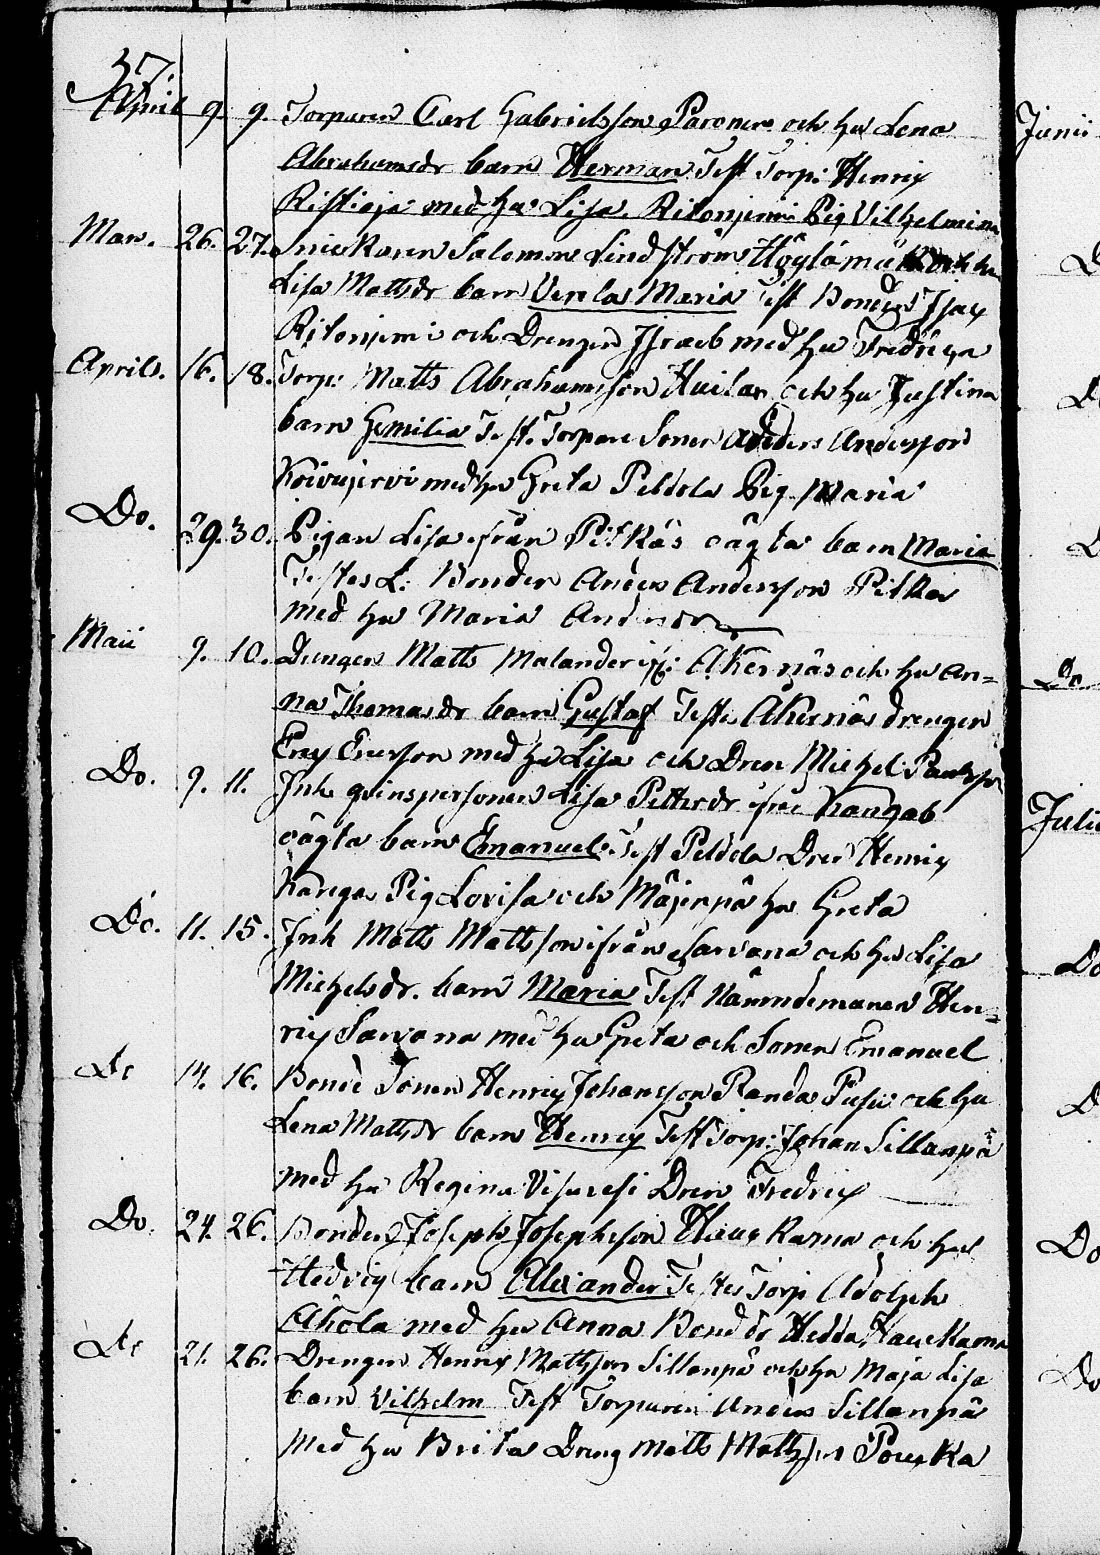 37.
April 9. 9. Torparen Carl Gabrielsson Paronen och hu Lena
Abrahamsdr barn Herman Test Torp: Henrix
Ristioja med hu Lisa. Ritoniemi Pig Vilhelmina
Mar. 26. 27. Snickaren Salomon Lindström Höylämä och hu
Lisa Mattsdr barn Venla Maria Test Bonden Isax
Ritoniemi och Drengen Israel med hu Fredrica
April. 16. 18. Torp: Matts Abrahamsson Huilas och hu Justina
barn Emilia Test. Torpare Sonen Anders Andersson
Koivujervi med hu Greta Peldola Pig Maria
Do. 29. 30. Pigan Lisa ifrån Pitkäs oägta barn Maria
Testes L: Bonden Anders Andersson Pitkä
med hu Maria Andersdr
Maii 9. 10. Drengen Matts Malander if: Åkernäs och hu An=
na Thomasdr barn Gustaf Teste Åkernäs drengen
Erix Ericsson med hu Lisa och Dren Michel Paulsson
Do. 9. 11. Inh qvinspersonen Lisa Pettersdr ifrå Kangas
oägta barn Emanuel. Test Peldola Dren Henrix
Kanga Pig Lovisa och Mäjenpä hu Greta
Do. 11. 15. Inh Matts Mattsson ifrån Sarvana och hu Lisa
Michelsdr. barn Maria Test Nämndemannen Hen=
rix Sarvana med hu Greta och Sonen Emanuel
Do 14. 16. Bonde Sonen Henrix Johansson Randa Pusu och hu
Lena Mattsdr barn Henrix Test Torp: Johan Sillanpä
med hu Regina Visuvesi Dren Fredrix
Do. 24. 26. Bonden Joseph Josephsson Haukama och hu
Hedvig barn Alexander Testes Torp Adolph
Ahola med hu Anna Bond dr Hedda Haukkama
Do 21. 26. Drengen Henrix Mattsson Sillanpä och hu Maja Lisa
barn Vilhelm Test Torparen Anders Sillanpä
med hu Brita Dreng Matts Mattsson Pouska
Junii
Do
Do
Do
Do
Julii
Do
Do
Do
Do